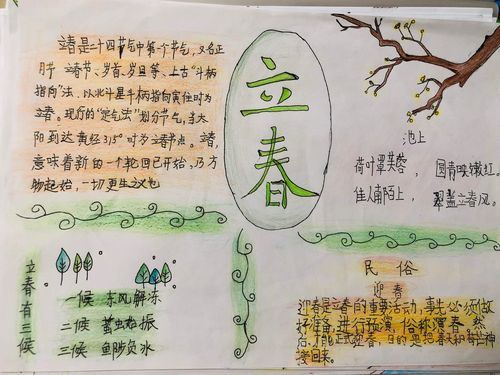 立春是二十四节气中第一个节气，又名正
月节、立春节、岁首、岁旦等，上古“斗柄
指向”法，以北斗星斗柄指向寅位时为
立春。现行的“定气法”划分节气，当太
阳到达黄经315°时为立春节点。立春，
意味着新的一个轮回已开始，乃万
物起始，一切更生之义也
立春
池上
荷叶罩芙蓉，圆青映嫩红。
佳人南陌上，翠盖立春风。
立春有三候
一候 东风解冻
二候 蛰虫始振
三候 鱼陟负冰
民俗
迎春
迎春是立春的重要活动，事先必须做
好准备，进行预演，俗称演春，然
后才能正式迎春，目的是把春天和句芒神
接回来。